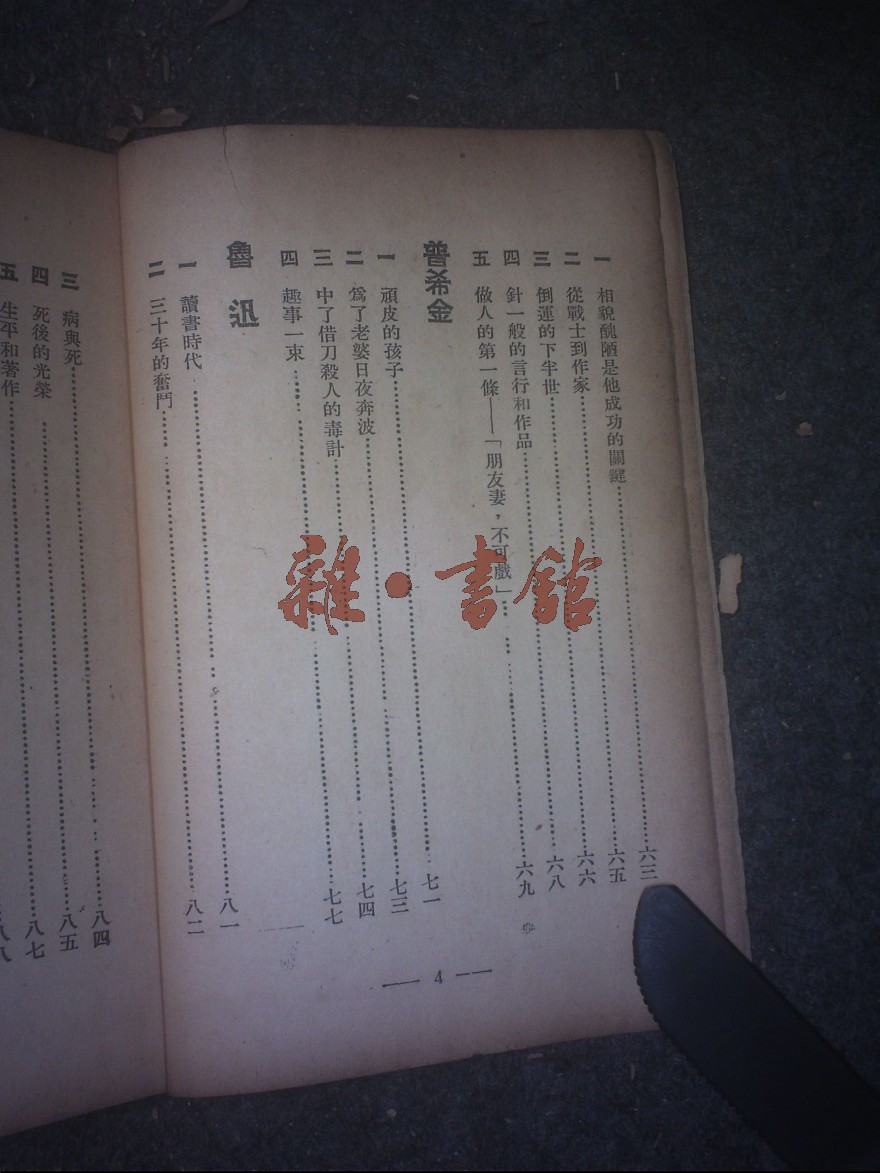 一 相貌醜陋是他成功的關鍵……六三
二 從戰士到作家……六五
三 倒運的下半世……六六
四 針一般的言行和作品……六八
五 做人的第一條——「朋友妻，不可戲」……六九
普希金
一 頑皮的孩子……七一
二 爲了老婆日夜奔波……七三
三 中了借刀殺人的毒計……七四
四 趣事一束……七七
魯迅
一 讀書時代……八一
二 三十年的奮鬥……八二
— 4 —
三 病與死……八四
四 死後的光榮……八五
五 生平和著作……八七
雜·書館